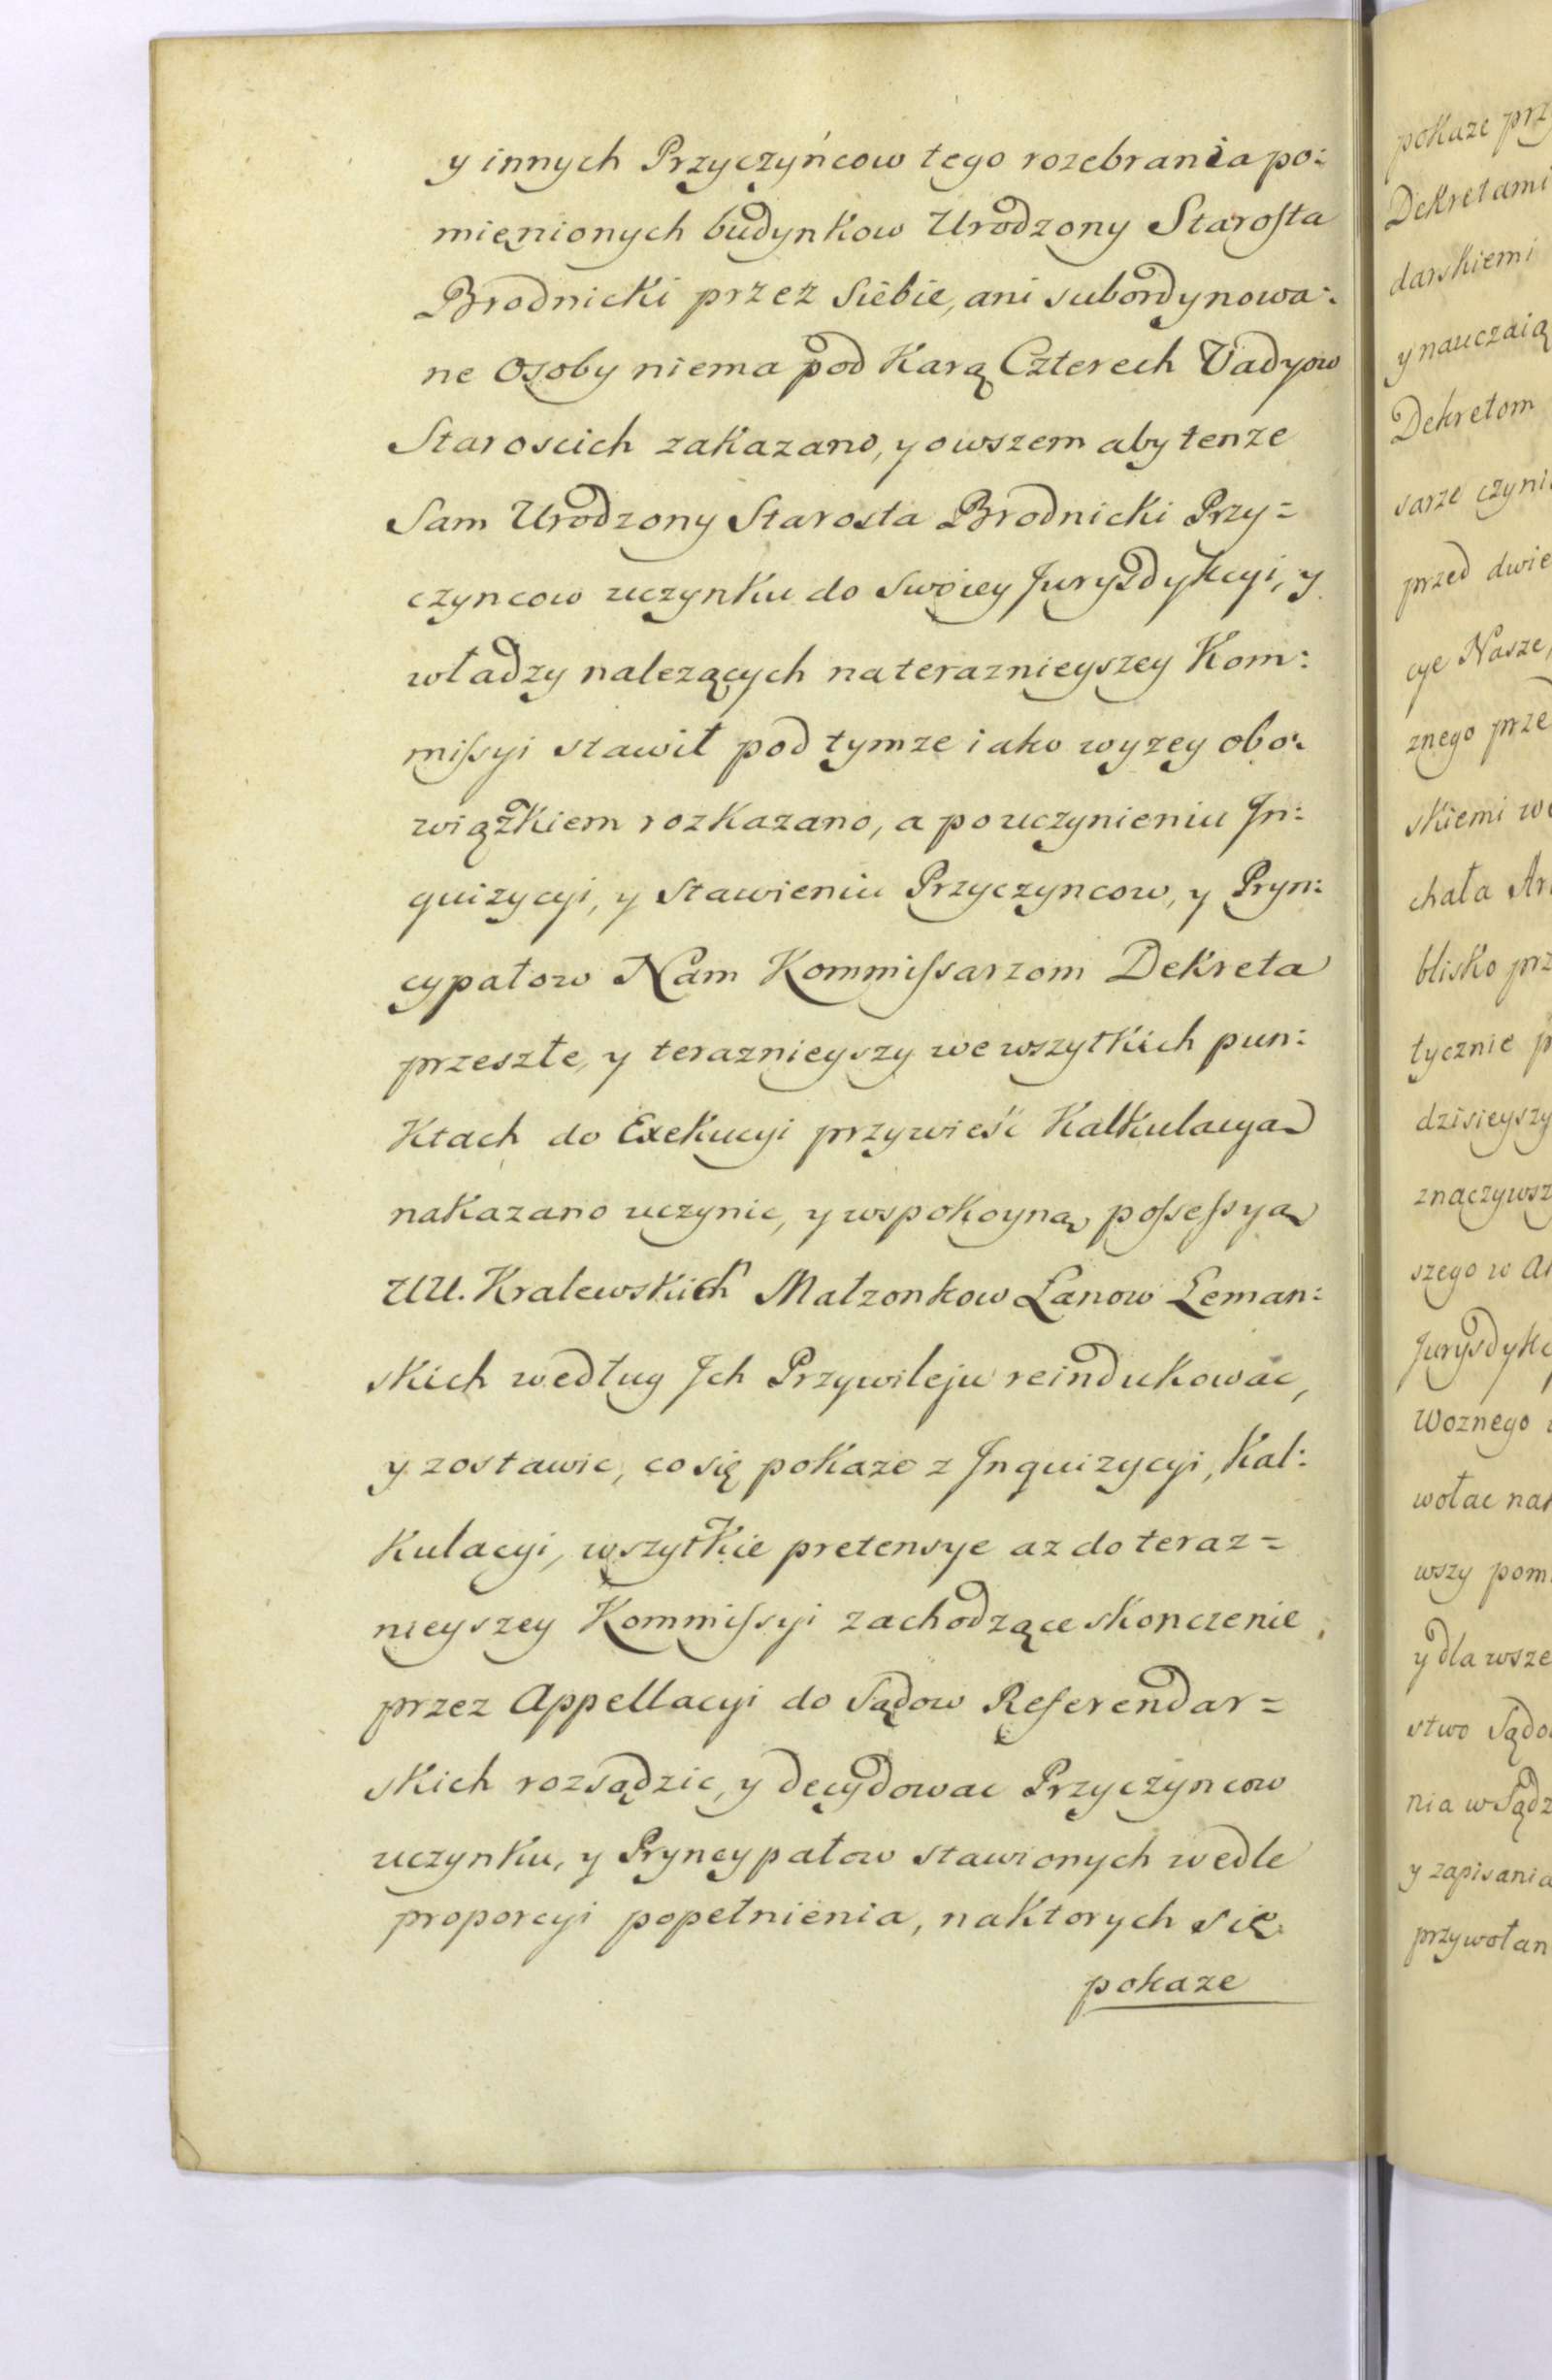 y innych Przyczyńcow tego rozebrania po:
mięnionych budynkow Urodzony Starosta
Brodnicki przez siebie, ani subordynowa:
ne Osoby niema pod Karą Czterech Vadyow
Staroscich zakazano, y owszem aby tenze
Sam Urodzony Starosta Brodnicki Przy=
czyncow uczynku do swoiey Jurysdykcyi, y
władzy nalezących na teraznieyszey Kom:
missyi stawił pod tymze iako wyzey obo:
wiązkiem rozkazano, a po uczynieniu In:
quizycyi, y Stawieniu Przyczyncow, y Pryn:
cypałow Nam Kommissarzom Dekreta
przeszłe, y teraznieyszy we wszytkich pun:
Ktach do Exekucyi przywieść Kalkulacyą
nakazano uczynic, y wspokoyną possessyą
UU. Kralewskich Małzonkow Łanow Leman:
skich według Ich Przywileju reindukować,
y zostawic, co się pokaze z Inquizycyi, Kal:
Kulacyi, wszytkie pretensye az do teraz=
nieyszey Kommissyi zachodzące skonczenie,
przez Appellacyi do Sądow Referendar=
skich rozsądzic, y decydowac Przyczyncow
uczynku, y Pryncypałow stawionych wedle
proporcyi popełnienia, na Ktorych się
pokaze
pokaze prz
Dekretami
darskiemi
y nauczaią
Dekretom
sarze czyni
przed dwie
cye Nasze,
znego prze
skiemi we
chała Ar
blisko prz
tycznie p
dzisieyszy
znaczywsz
szego w
Jurysdykc
Woznego
wołac nak
wszy pom
y dla wsze
stwo Sądo
nia w Sądz
y zapisania
przywołan